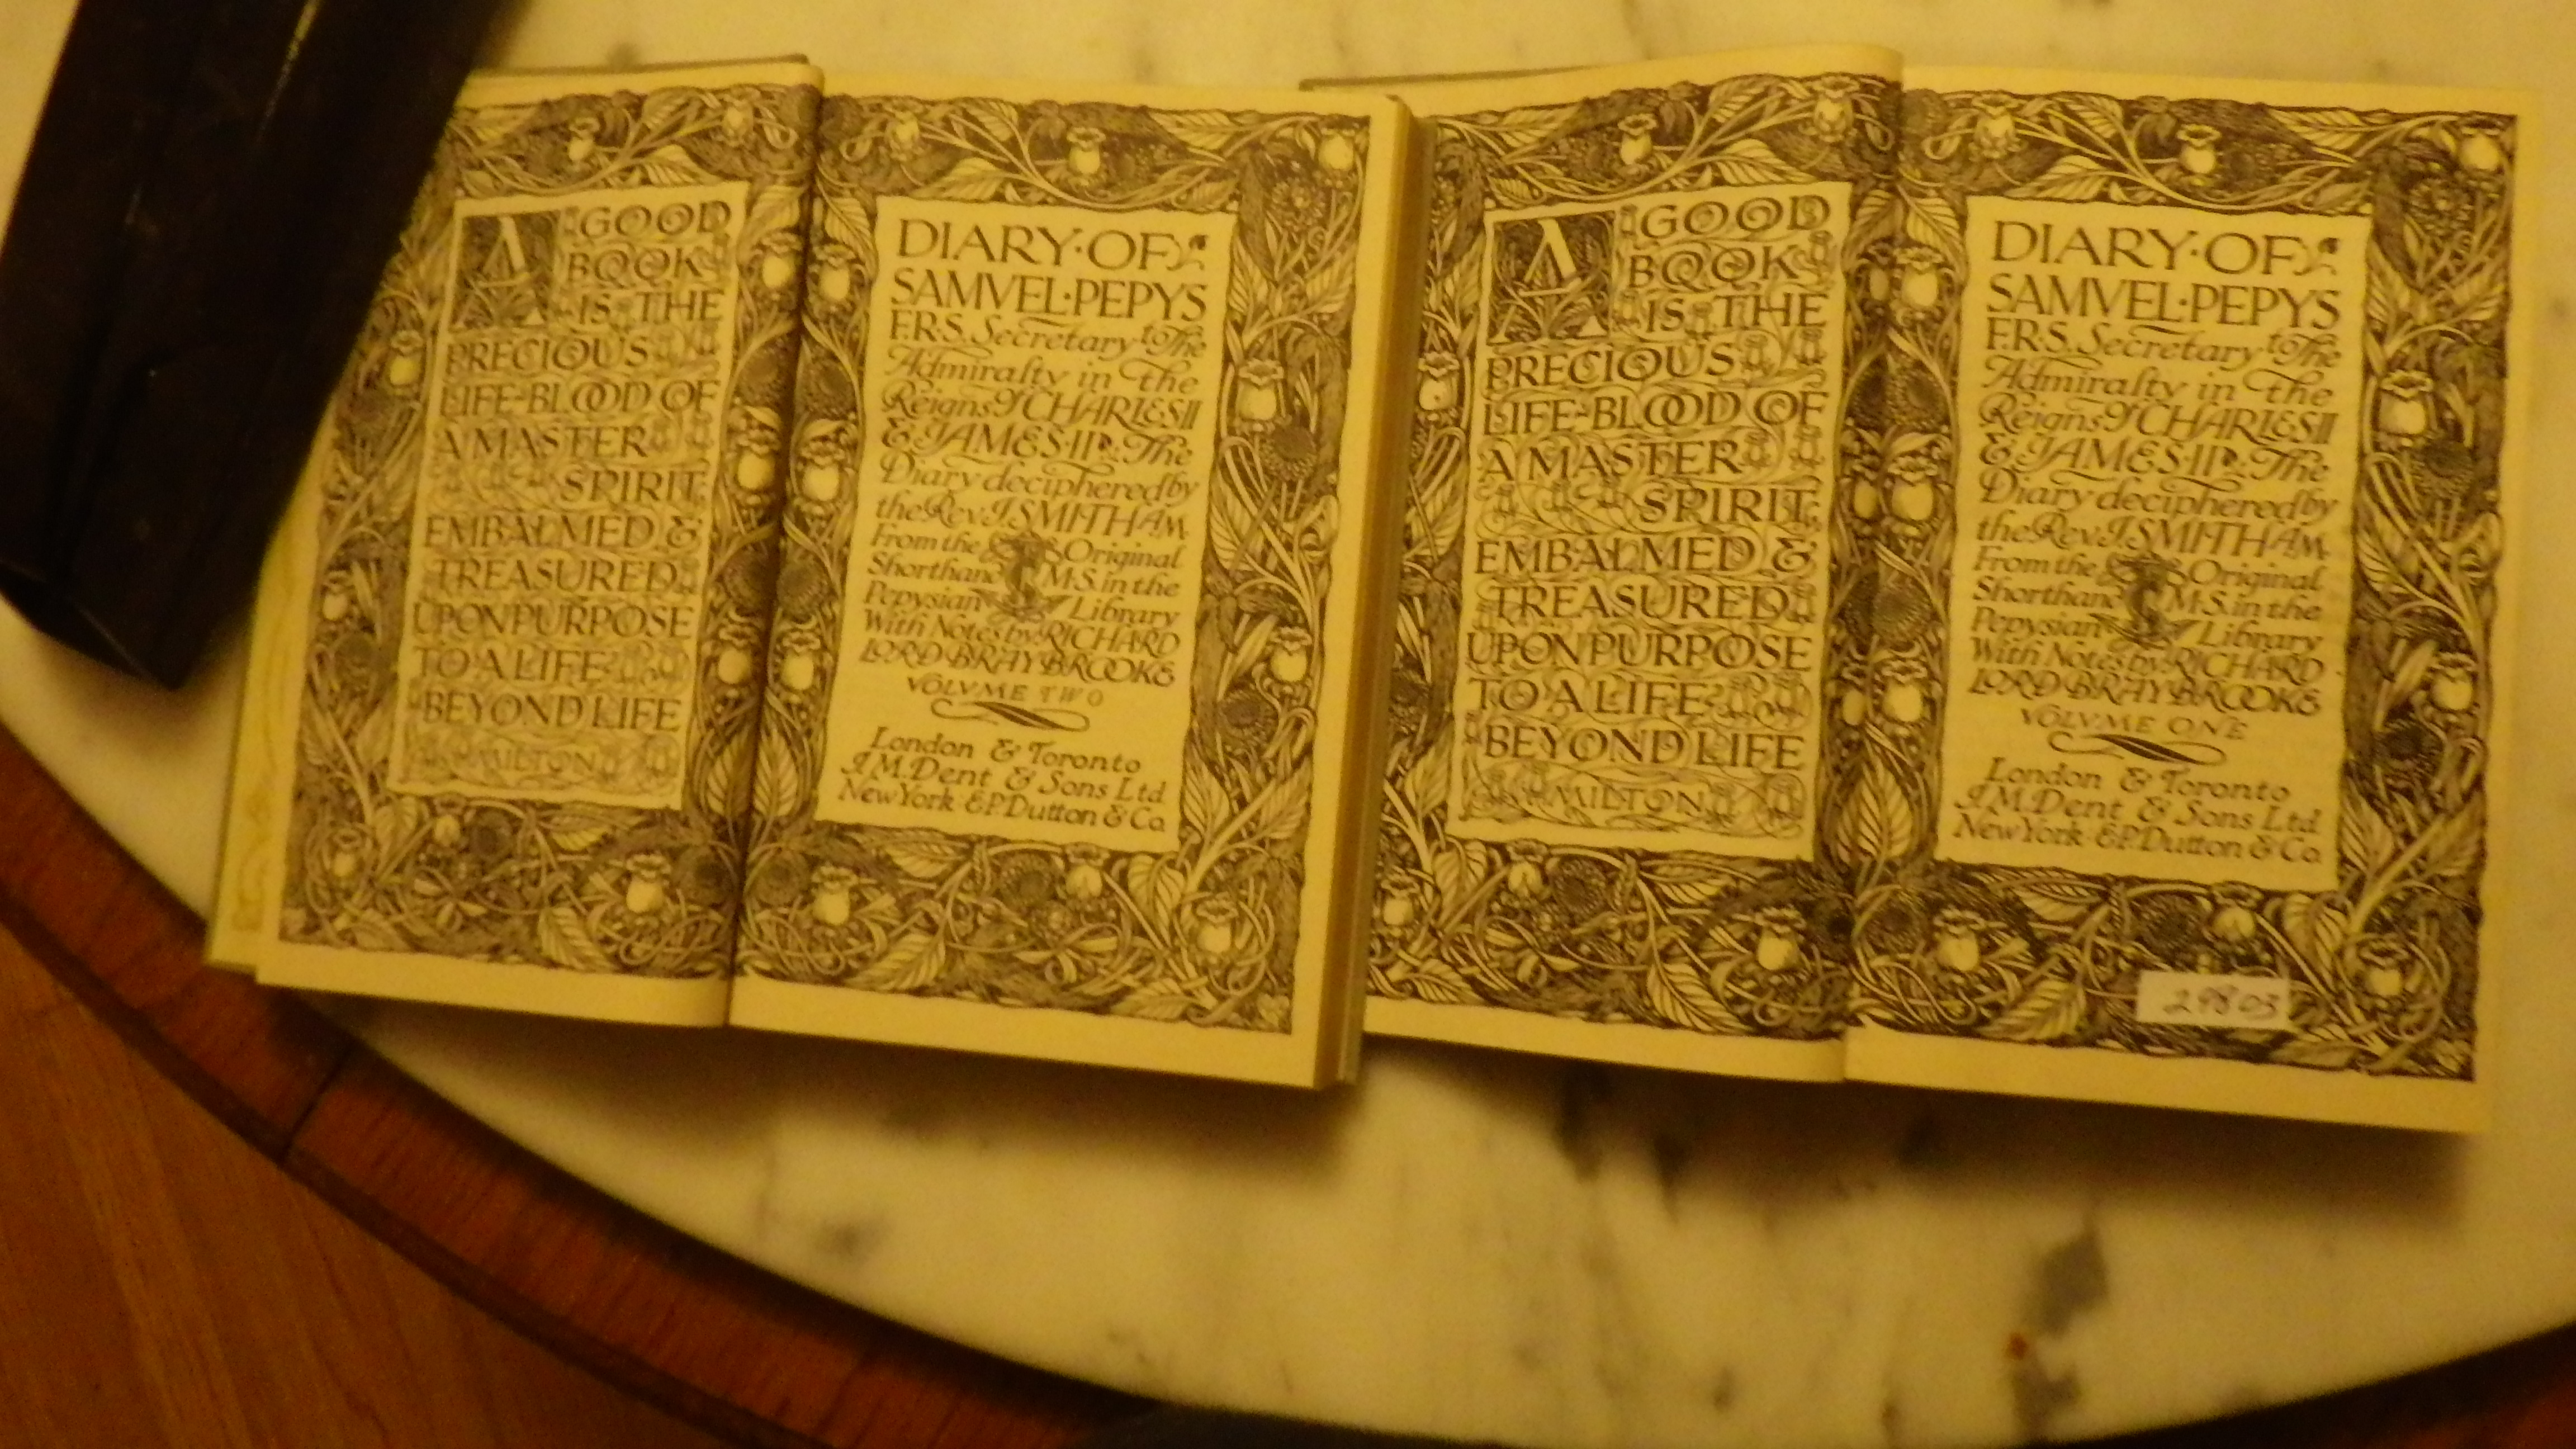 A GOOD
BOOK
IS THE
PRECIOUS
LIFE-BLOOD OF
A MASTER
SPIRIT,
EMBALMED &
TREASURED
UPON PURPOSE
TO A LIFE
BEYOND LIFE
MILTON
DIARY·OF
SAMVEL·PEPYS
F.R.S. Secretary to The
Admiralty in the
Reigns of CHARLES II
& JAMES·II: The
Diary deciphered by
the Rev J. SMITH AM.
From the Original
Shorthand M·S. in the
Pepysian Library
With Notes by RICHARD
LORD·BRAYBROOKE
VOLVME TWO
London & Toronto
J.M.Dent & Sons Ltd.
New York E.P.Dutton & Co.
A GOOD
BOOK
IS THE
PRECIOUS
LIFE-BLOOD OF
A MASTER
SPIRIT,
EMBALMED &
TREASURED
UPON PURPOSE
TO A LIFE
BEYOND LIFE
MILTON
DIARY·OF
SAMVEL·PEPYS
F.R.S. Secretary to The
Admiralty in the
Reigns of CHARLES II
& JAMES·II: The
Diary deciphered by
the Rev J. SMITH AM.
From the Original
Shorthand M·S. in the
Pepysian Library
With Notes by RICHARD
LORD·BRAYBROOKE
VOLVME ONE
London & Toronto
J.M.Dent & Sons Ltd.
New York E.P.Dutton & Co.
29803